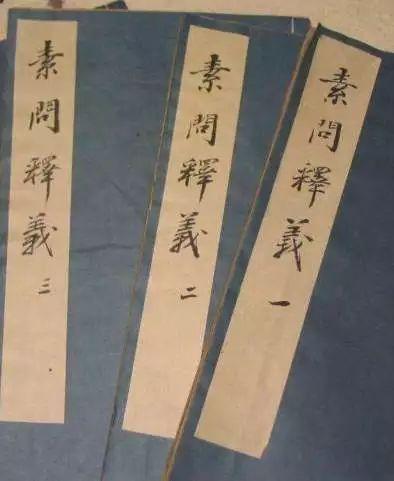 素問釋義一
素問釋義二
素問釋義三